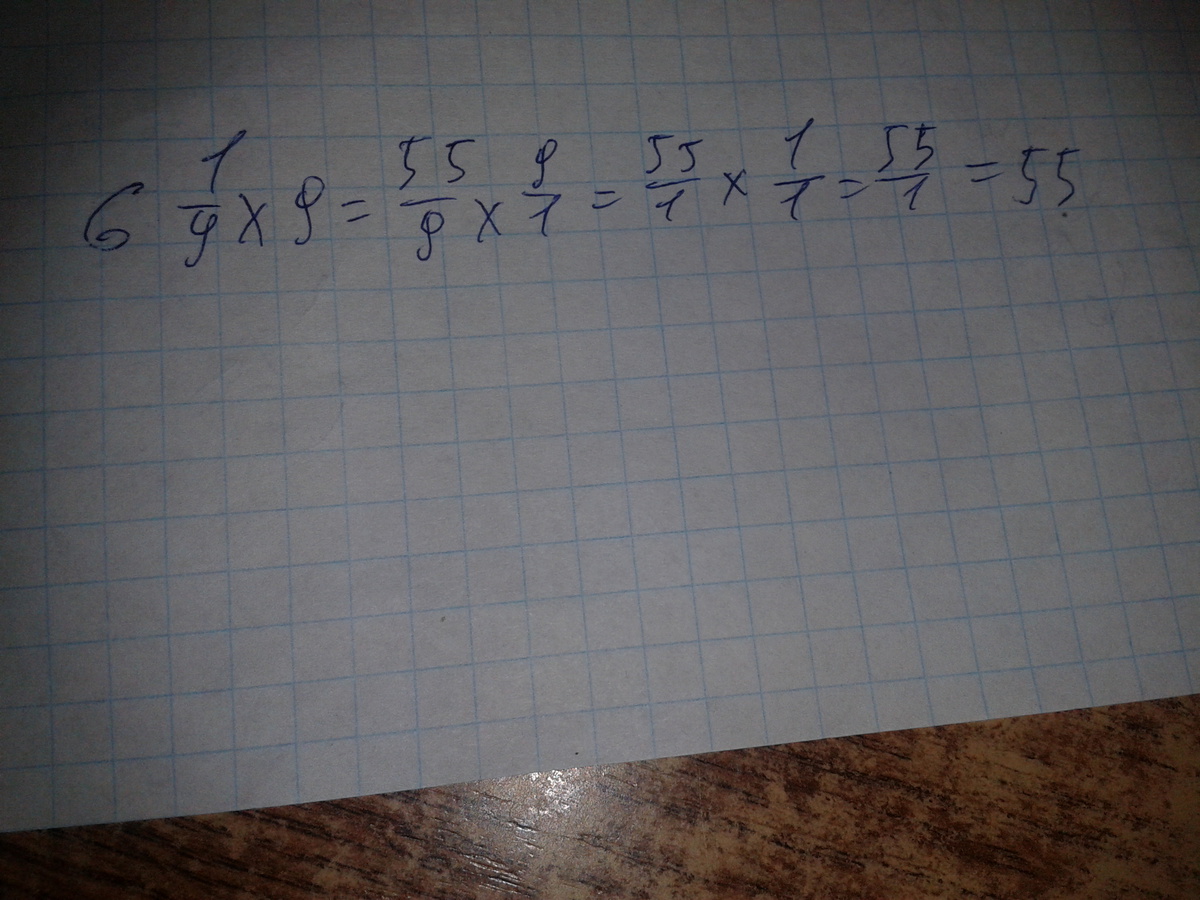 6 1/9 x 9 = 55/9 x 9/1 = 55/1 x 1/1 = 55/1 = 55